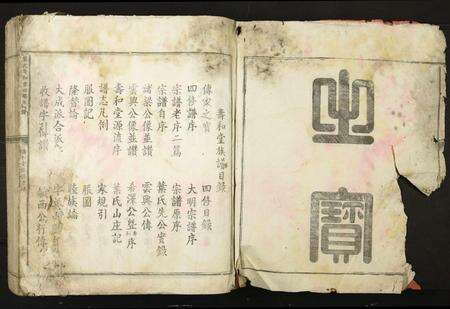 之寶
壽和堂族譜目錄
傳家之寶 四修目錄
四修譜序 大明宗譜序
宗譜老序二篇 宗譜原序
宗譜自序 葉氏先公實錄
諸梁公像並讚 雲興公傳
雲興公像並讚 希深公序
壽和堂源流序 葉氏山庄記
譜志凡例 家規引
服圖記 服圖
隆祭論 睦族論
大成派合派 字派
收譜字引讚 西公行傳